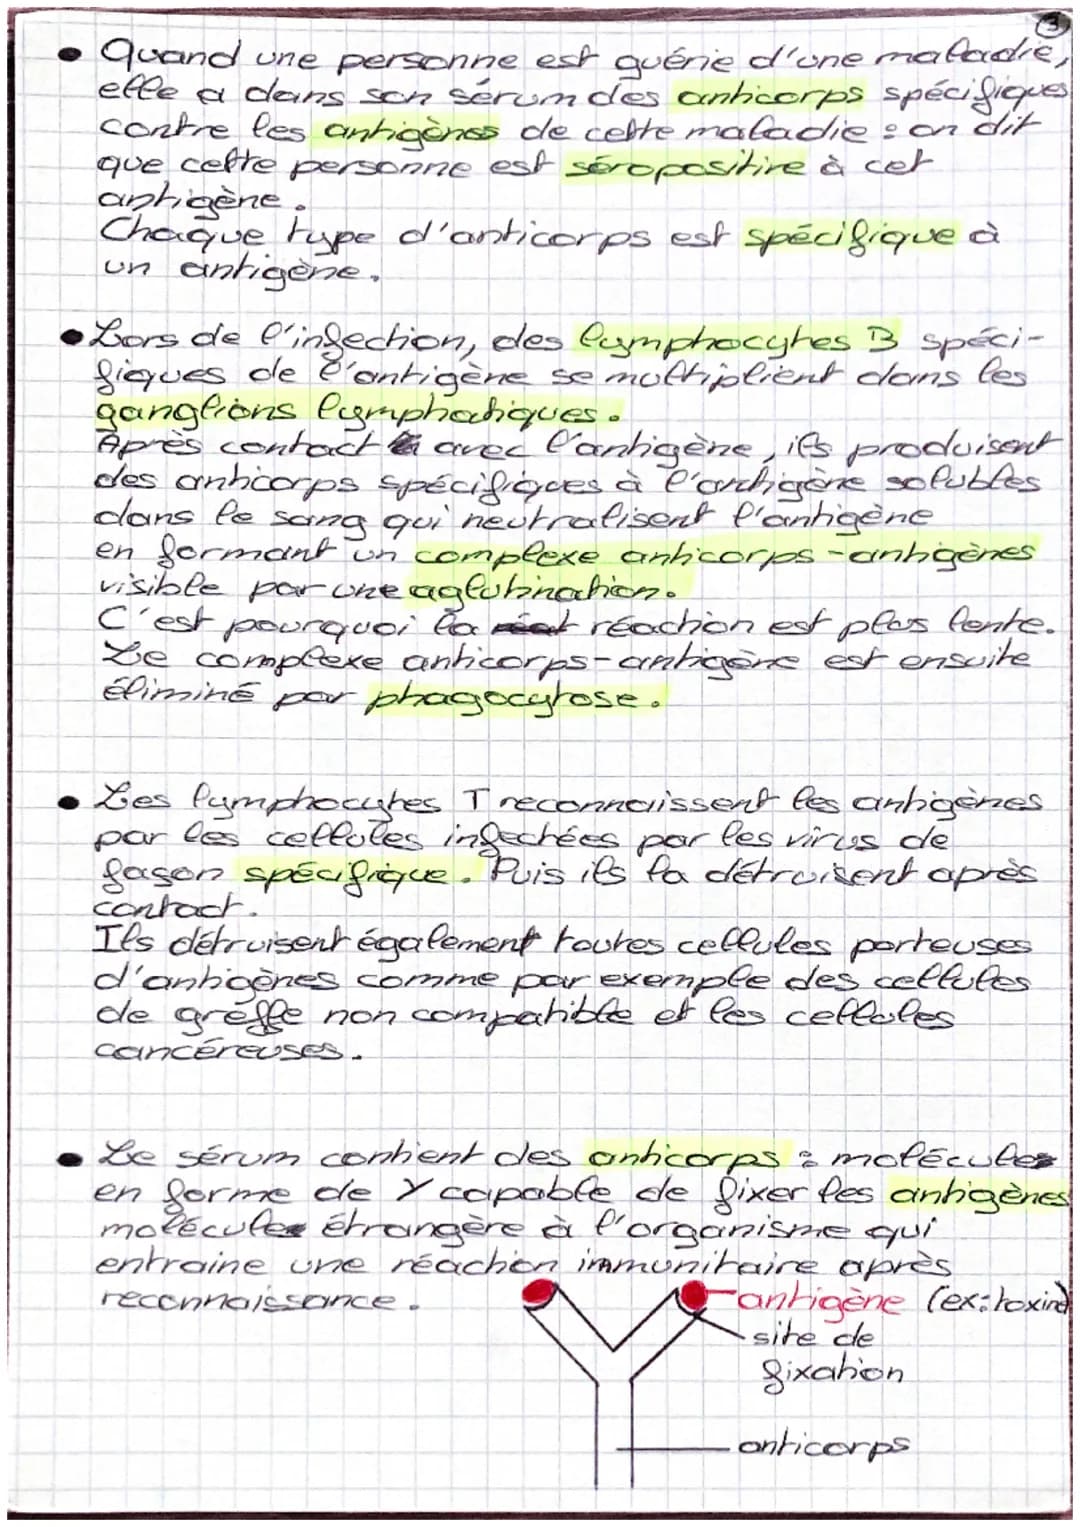 3
• Quand une personne est guérie d'une maladie,
elle a dans son sérum des anticorps spécifiques
contre les antigènes de cette maladie : on dit
que cette personne est séropositive à cet
antigène.
Chaque type d'anticorps est spécifique à
un antigène.
• Lors de l'infection, des lymphocytes B spéci-
fiques de l'antigène se multiplient dans les
ganglions lymphatiques.
Après contact avec l'antigène, ils produisent
des anticorps spécifiques à l'antigène solubles
dans le sang qui neutralisent l'antigène
en formant un complexe anticorps-antigènes
visible par une aglutination.
C'est pourquoi la réaction est plus lente.
Le complexe anticorps-antigène est ensuite
éliminé par phagocytose.
• Les lymphocytes T reconnaissent les antigènes
par les cellules infectées par les virus de
façon spécifique. Puis ils la détruisent après
contact.
Ils détruisent également toutes cellules porteuses
d'antigènes comme par exemple des cellules
de greffe non compatible et les cellules
cancéreuses.
• Le sérum contient des anticorps : molécules
en forme de Y capable de fixer les antigènes
molécule étrangère à l'organisme qui
entraine une réaction immunitaire après
reconnaissance.
antigène (ex: toxine)
site de
fixation
anticorps